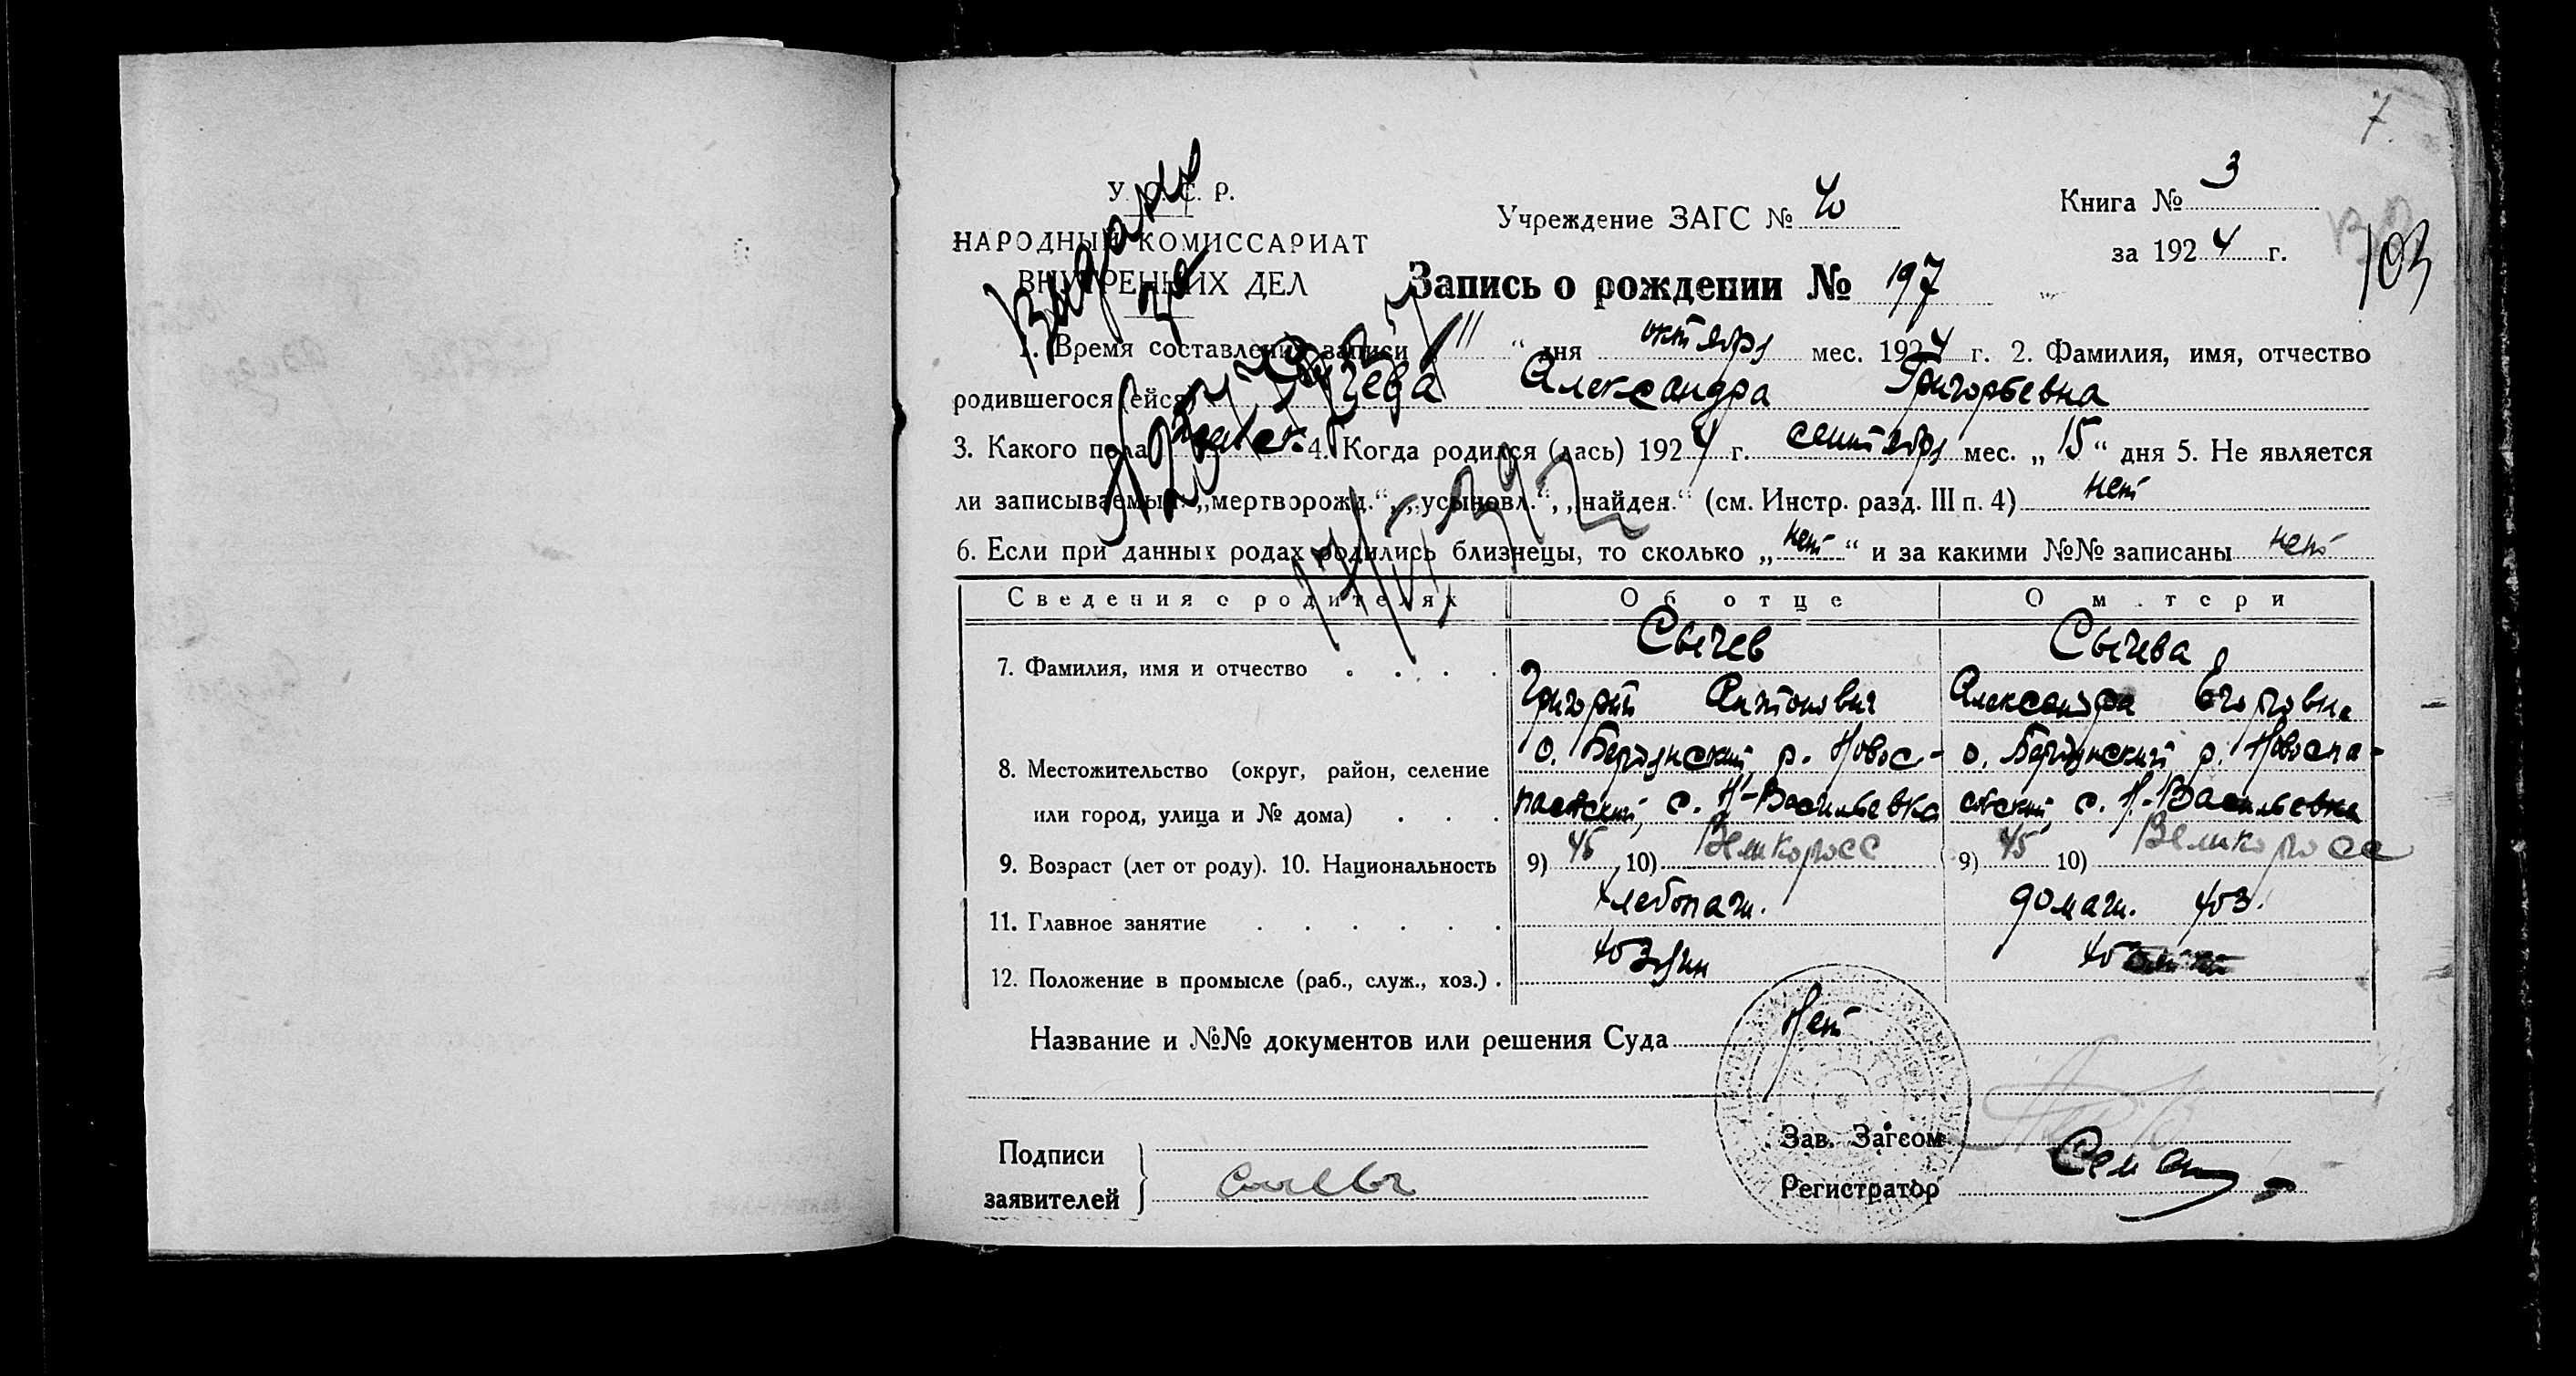 7.
У. С. С. Р.
НАРОДНЫЙ КОМИССАРИАТ
ВНУТРЕННИХ ДЕЛ
Учреждение ЗАГС №
Книга № 3
за 1924 г.
103
Запись о рождении № 197
1. Время составления записи „ “ дня октября мес. 1924 г. 2. Фамилия, имя, отчество
родившегося (ейся) Сычева Александра Григорьевна
3. Какого пола женск. 4. Когда родился (лась) 1924 г. сентября мес. „ 15 “ дня 5. Не является
ли записываемый: „мертворожд.“, „усыновл.“, „найден.“ (см. Инстр. разд. III п. 4) нет
6. Если при данных родах родились близнецы, то сколько „ нет “ и за какими №№ записаны нет
Сведения о родителях Об отце О матери
7. Фамилия, имя и отчество Сычев Сычева
Григорий Антонович Александра Егоровна
8. Местожительство (округ, район, селение о. Бердянский, р. Новос- о. Бердянский р. Новоспа-
или город, улица и № дома) пасский, с. Н-Васильевка сский, с. Н-Васильевка
9. Возраст (лет от роду). 10. Национальность 9) 45 10) Великоросс 9) 45 10) Великоросс
11. Главное занятие хлебопаш. домаш. хоз.
12. Положение в промысле (раб., служ., хоз.) хозяин
Название и №№ документов или решения Суда Нет
Подписи
заявителей
Зав. Загсом
Регистратор